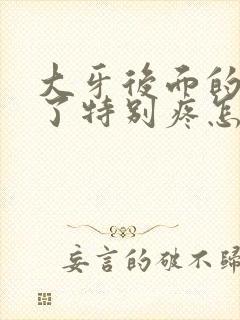 大牙后面的
了特别疼怎
妄言的破不归